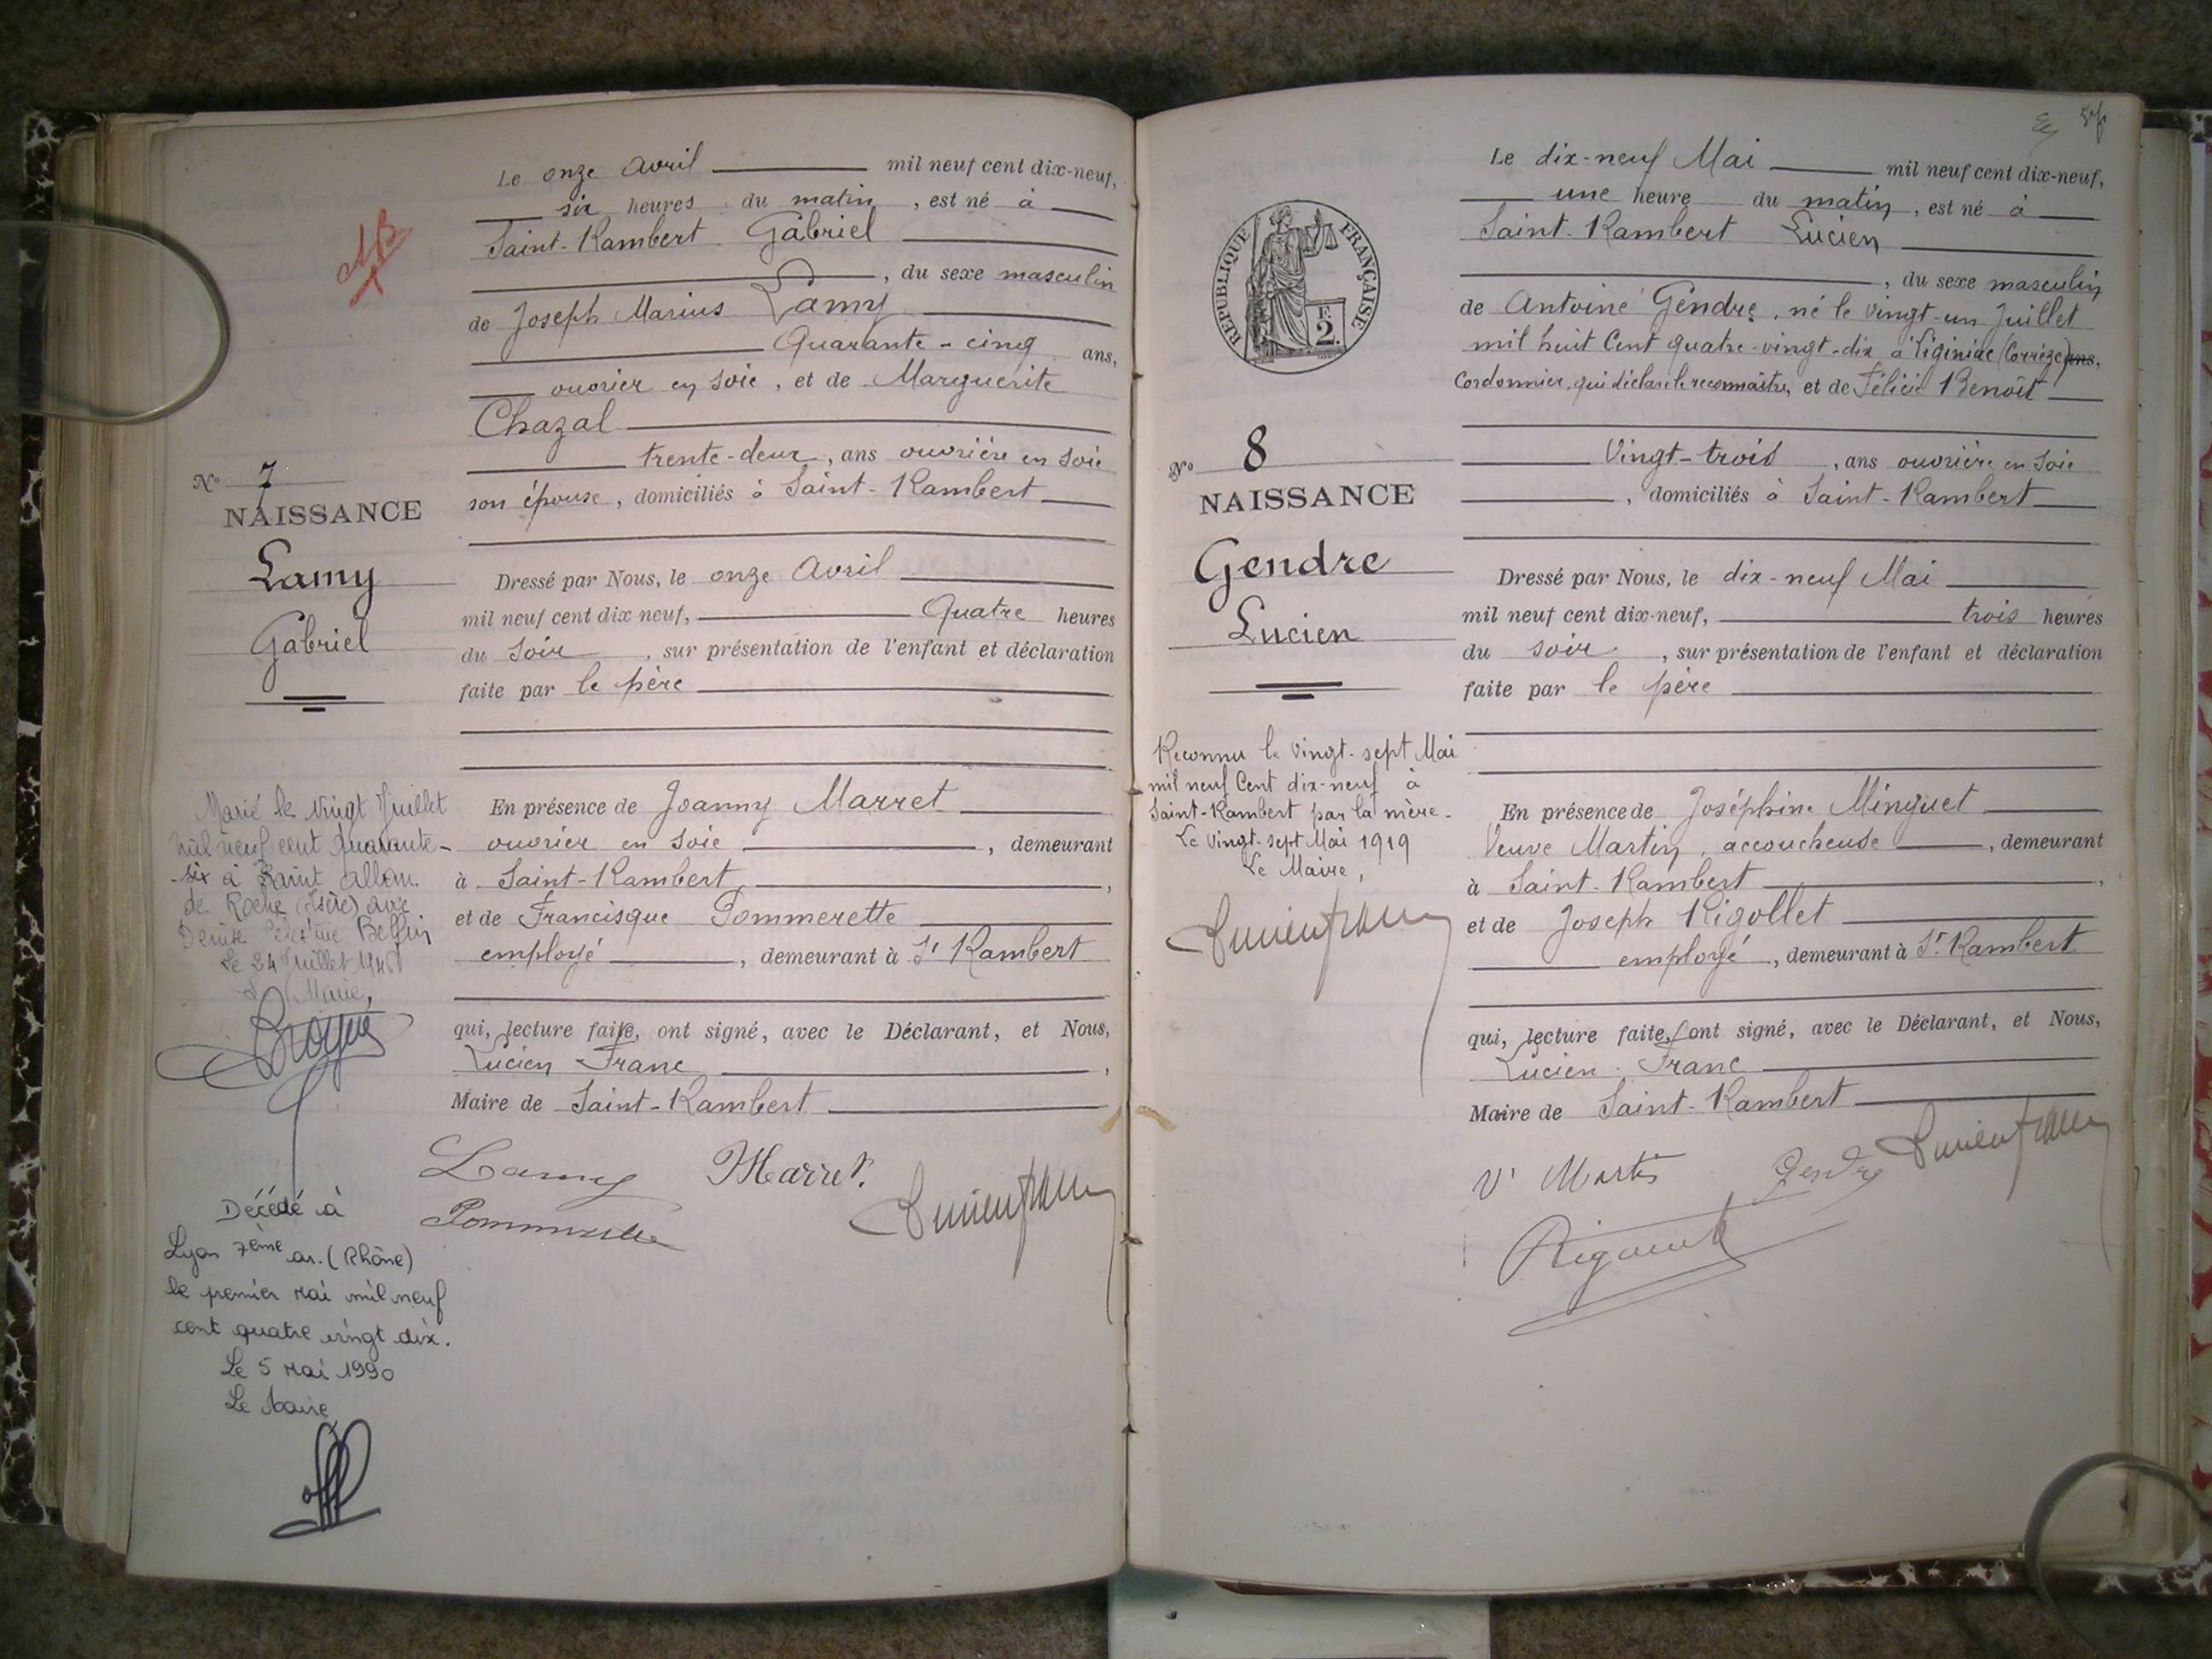 Le onze Avril mil neuf cent dix-neuf,
six heures du matin, est né à
Saint-Rambert Gabriel
, du sexe masculin
de Joseph Marius Lamy
Quarante-cinq ans,
ouvrier en soie, et de Marguerite
Chazal
trente-deux, ans ouvrière en soie
son épouse, domiciliés à Saint-Rambert
N° 7
NAISSANCE
Lamy
Gabriel
Dressé par Nous, le onze Avril
mil neuf cent dix neuf, Quatre heures
du soir, sur présentation de l'enfant et déclaration
faite par le père
En présence de Joanny Marret
ouvrier en soie, demeurant
à Saint-Rambert,
et de Francisque Pommerette
employé, demeurant à St Rambert
qui, lecture faite, ont signé, avec le Déclarant, et Nous,
Lucien Franc,
Maire de Saint-Rambert
Lamy Marret
Marié le vingt Juillet
mil neuf cent quarante-
six à Saint Alban
de Roche (Isère) avec
Denise
le 24 Juillet 1946
Le Maire,
Décédé à
Lyon 7ème ar. (Rhône)
le premier mai mil neuf
cent quatre vingt dix.
Le 5 mai 1990
Le Maire
Le dix-neuf Mai mil neuf cent dix-neuf,
une heure du matin, est né à
Saint-Rambert Lucien
, du sexe masculin
de Antoine Gendre, né le vingt-un Juillet
mil huit Cent quatre-vingt-dix à Liginiac (Corrèze) ans,
Cordonnier, qui déclare le reconnaître, et de Félicie Benoît
Vingt-trois, ans ouvrière en soie
, domiciliés à Saint-Rambert
REPUBLIQUE FRANÇAISE
F.
2.
N° 8
NAISSANCE
Gendre
Lucien
Dressé par Nous, le dix-neuf Mai
mil neuf cent dix-neuf, trois heures
du soir, sur présentation de l'enfant et déclaration
faite par le père
En présence de Joséphine Minguet
Veuve Martin, accoucheuse, demeurant
à Saint-Rambert,
et de Joseph Rigollet
employé, demeurant à St Rambert
qui, lecture faite, ont signé, avec le Déclarant, et Nous,
Lucien Franc
Maire de Saint-Rambert
Vve Martin Gendre
Reconnu le vingt-sept Mai
mil neuf Cent dix-neuf à
Saint-Rambert par la mère.
Le vingt-sept Mai 1919
Le Maire,